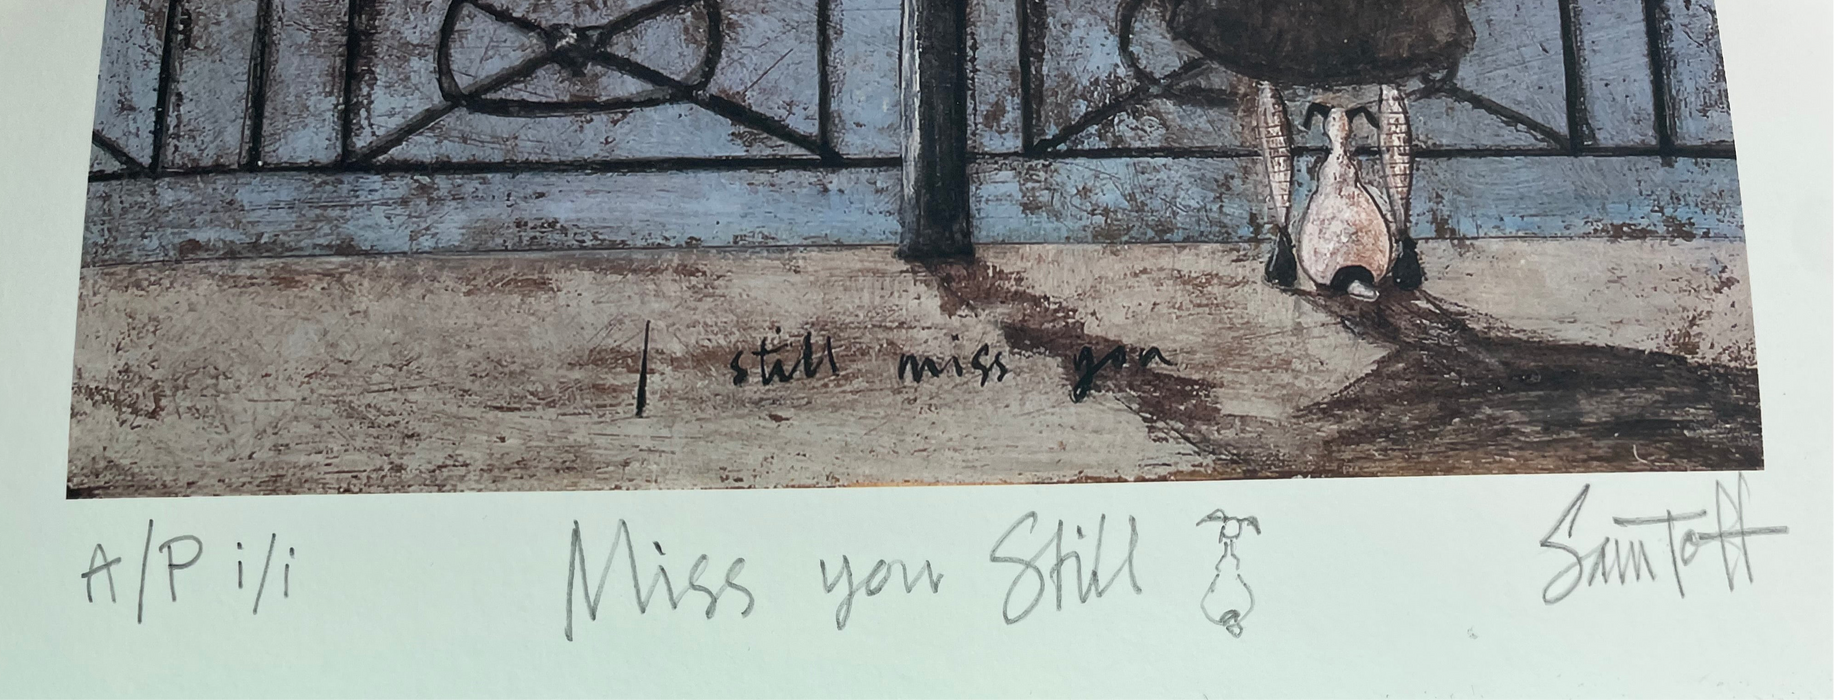 I still miss you
A/P i/i Miss you Still Sam Toft